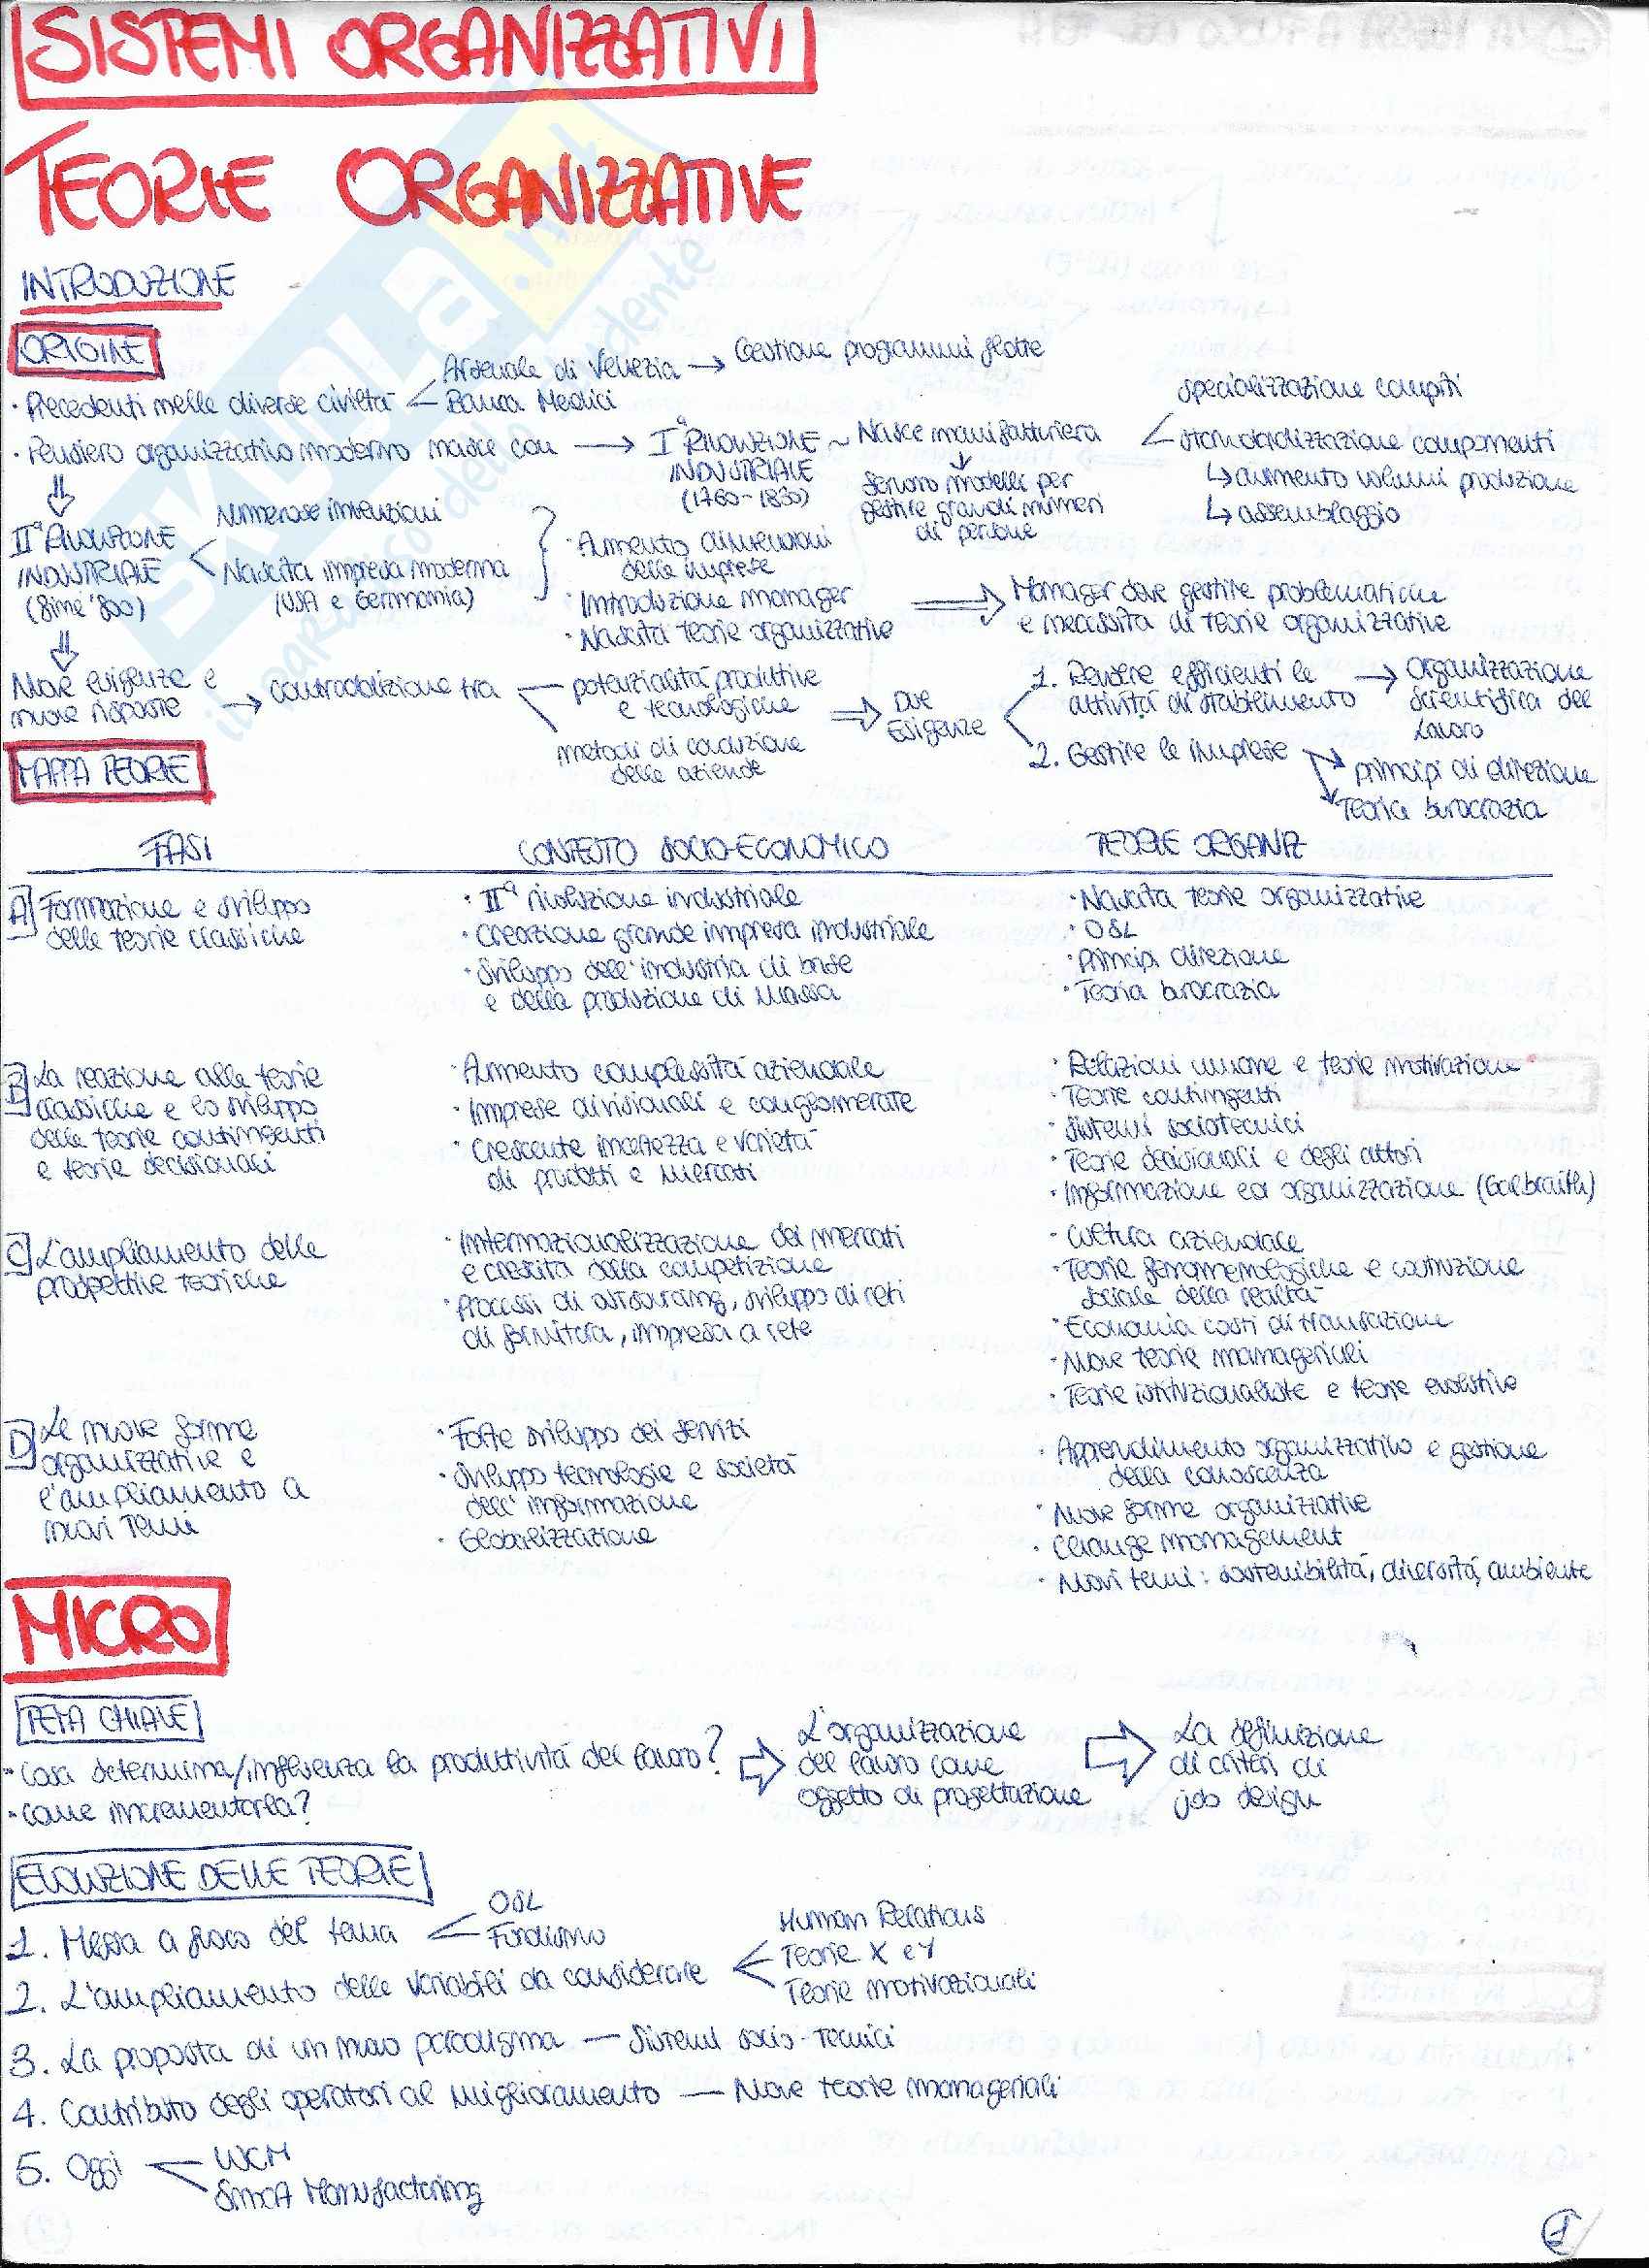 SISTEMI ORGANIZZATIVI
TEORIE ORGANIZZATIVE
INTRODUZIONE
ORIGINE
• Precedenti nelle diverse civiltà
Arsenale di Venezia → Gestione programmi flotte
Banca Medici
• Pensiero organizzativo moderno nasce con → Iª RIVOLUZIONE INDUSTRIALE (1760-1830) ~ Nasce manifatturiera
Servono modelli per
gestire grandi numeri
di persone
specializzazione compiti
standardizzazione componenti
↳ aumento volumi produzione
↳ assemblaggio
IIª RIVOLUZIONE
INDUSTRIALE
(fine '800)
Numerose invenzioni
Nascita impresa moderna
(USA e Germania)
• Aumento dimensioni
delle imprese
• Introduzione manager
• Nascita teorie organizzative
Manager deve gestire problematiche
e necessità di teorie organizzative
Nuove esigenze e
nuove risposte
→ contraddizione tra
potenzialità produttive
e tecnologiche
metodi di conduzione
delle aziende
⇒ DUE
ESIGENZE
1. Rendere efficienti le
attività di stabilimento
→ Organizzazione
Scientifica del
Lavoro
2. Gestire le imprese
principi di direzione
Teoria burocrazia
MAPPA TEORIE
FASI
CONTESTO SOCIO-ECONOMICO
TEORIE ORGANIZ
A Formazione e sviluppo
delle teorie classiche
• IIª rivoluzione industriale
• Creazione grande impresa industriale
• Sviluppo dell'industria di base
e della produzione di massa
• Nascita teorie organizzative
• OSL
• Principi direzione
• Teoria burocrazia
B La reazione alle teorie
classiche e lo sviluppo
delle teorie contingenti
e teorie decisionali
• Aumento complessità aziendale
• Imprese divisionali e conglomerate
• Crescente incertezza e varietà
di prodotti e mercati
• Relazioni umane e teorie motivazione
• Teorie contingenti
• Sistemi sociotecnici
• Teorie decisionali e degli attori
• Informazione ed organizzazione (Galbraith)
C L'ampliamento delle
prospettive teoriche
• Internazionalizzazione dei mercati
e crescita della competizione
• Processi di outsourcing, sviluppo di reti
di fornitura, impresa a rete
• Cultura aziendale
• Teorie fenomenologiche e costruzione
sociale della realtà
• Economia costi di transazione
• Nuove teorie manageriali
• Teorie istituzionaliste e teorie evolutive
D Le nuove forme
organizzative e
l'ampliamento a
nuovi temi
• Forte sviluppo dei servizi
• Sviluppo tecnologie e società
dell'informazione
• Globalizzazione
• Apprendimento organizzativo e gestione
della conoscenza
• Nuove forme organizzative
• Change management
• Nuovi temi: sostenibilità, diversità, ambiente
MICRO
TEMA CHIAVE
• Cosa determina/influenza la produttività del lavoro?
• Come incrementarla?
L'organizzazione
del lavoro come
oggetto di progettazione
La definizione
di criteri di
job design
EVOLUZIONE DELLE TEORIE
1. Messa a fuoco del tema
OSL
Fordismo
2. L'ampliamento delle variabili da considerare
Human Relations
Teorie X e Y
Teorie motivazionali
3. La proposta di un nuovo paradigma — Sistemi socio-tecnici
4. Contributo degli operatori al miglioramento — Nuove teorie manageriali
5. Oggi
WCM
Smart Manufacturing
1
SKUOLA.net
il paradiso dello studente